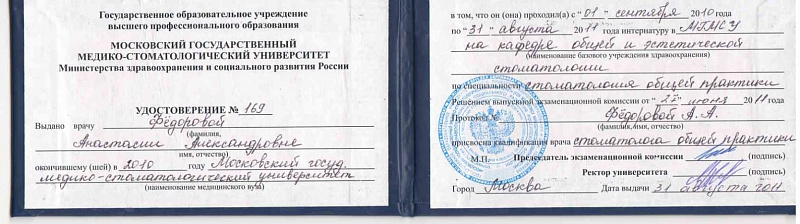 Государственное образовательное учреждение
высшего профессионального образования
МОСКОВСКИЙ ГОСУДАРСТВЕННЫЙ
МЕДИКО-СТОМАТОЛОГИЧЕСКИЙ УНИВЕРСИТЕТ
Министерства здравоохранения и социального развития России
УДОСТОВЕРЕНИЕ № 169
Выдано врачу Фёдоровой
(фамилия,
Анастасии Александровне
имя, отчество)
окончившему (шей) в 2010 году Московский госуд.
медико-стоматологический университет
(наименование медицинского вуза)
в том, что он (она) проходил(а) с "01" сентября 2010
по "31" августа 2011 года интернатуру в МГМСУ
на кафедре общей и эстетической
(наименование базового учреждения здравоохранения)
стоматологии
по специальности стоматология общей практики
Решением выпускной экзаменационной комиссии от "22" июня 2011 года
Протокол № Фёдоровой А. А.
(фамилия, имя, отчество)
присвоена квалификация врача стоматолога общей практики
М.П. Председатель экзаменационной комиссии (подпись)
Ректор университета (подпись)
Город Москва Дата выдачи 31 августа 2011